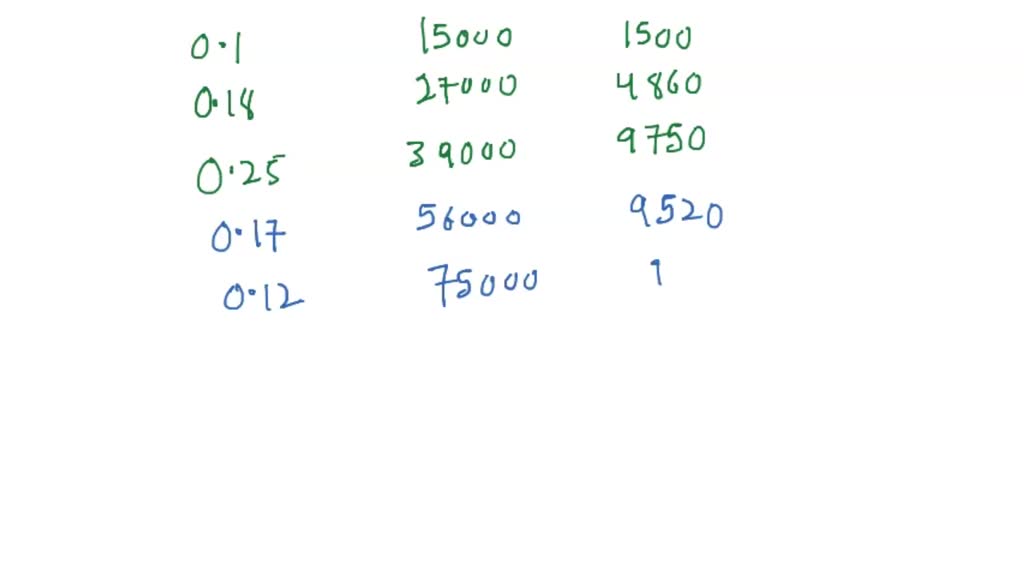 0.1 15000 1500
0.18 27000 4860
0.25 39000 9750
0.17 56000 9520
0.12 75000 1